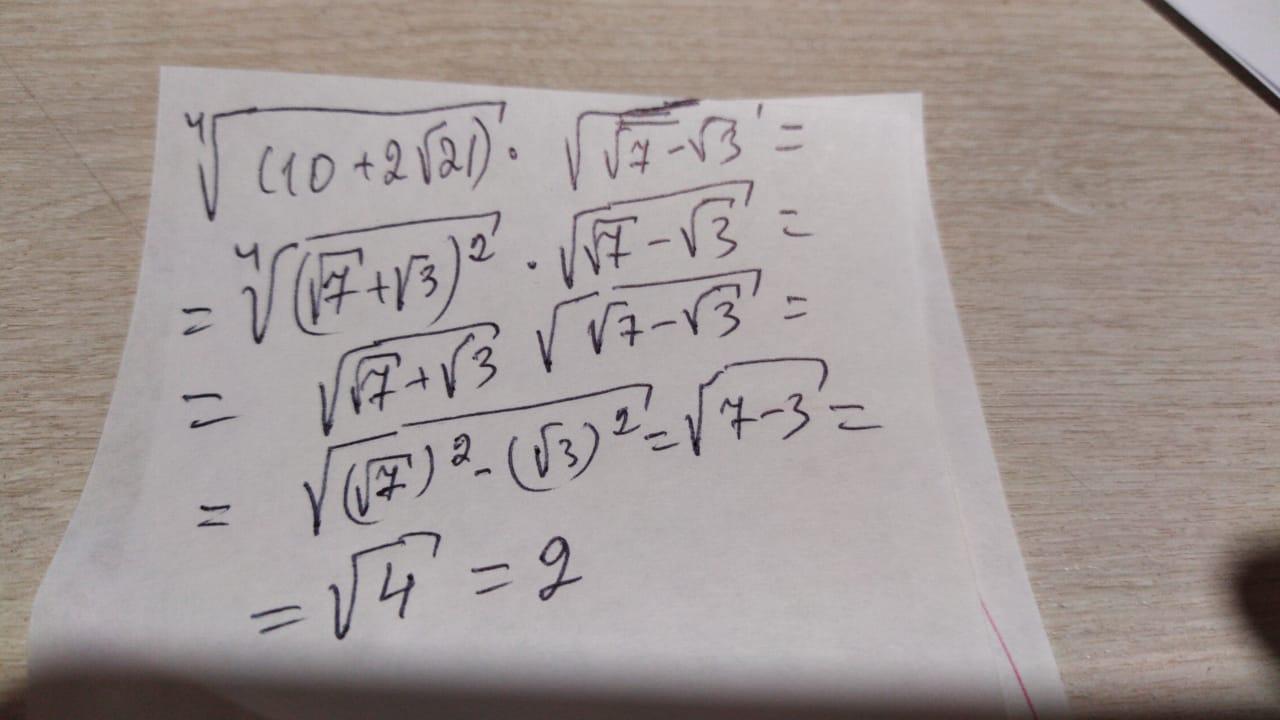 ⁴√(10+2√21) · √(√7-√3) =
= ⁴√(√7+√3)² · √(√7-√3) =
= √(√7+√3) √(√7-√3) =
= √((√7)²-(√3)²) = √(7-3) =
= √4 = 2